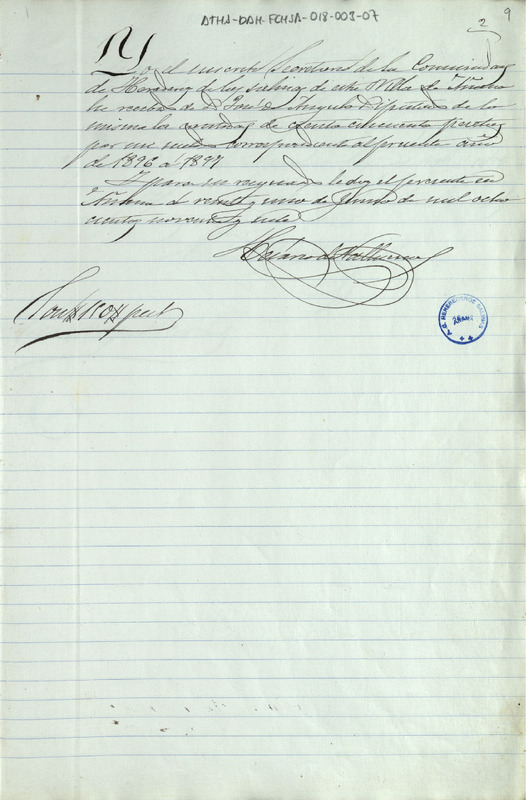 ATHA-DAH-FCHSA-018-003-07
2
9
Yo el infrascrito Secretario de la Comunidad
de Herederos de las Salinas de esta Villa de Añana
he recibido de D. José Angulo Diputado de la
misma la cantidad de ciento cincuenta pesetas
por un correspondiente al presente año
de 1896 a 1897
Y para su resguardo le doy el presente en
Añana a veinte y uno de Junio de mil ocho
cientos noventa y siete
Son # 150 # pset